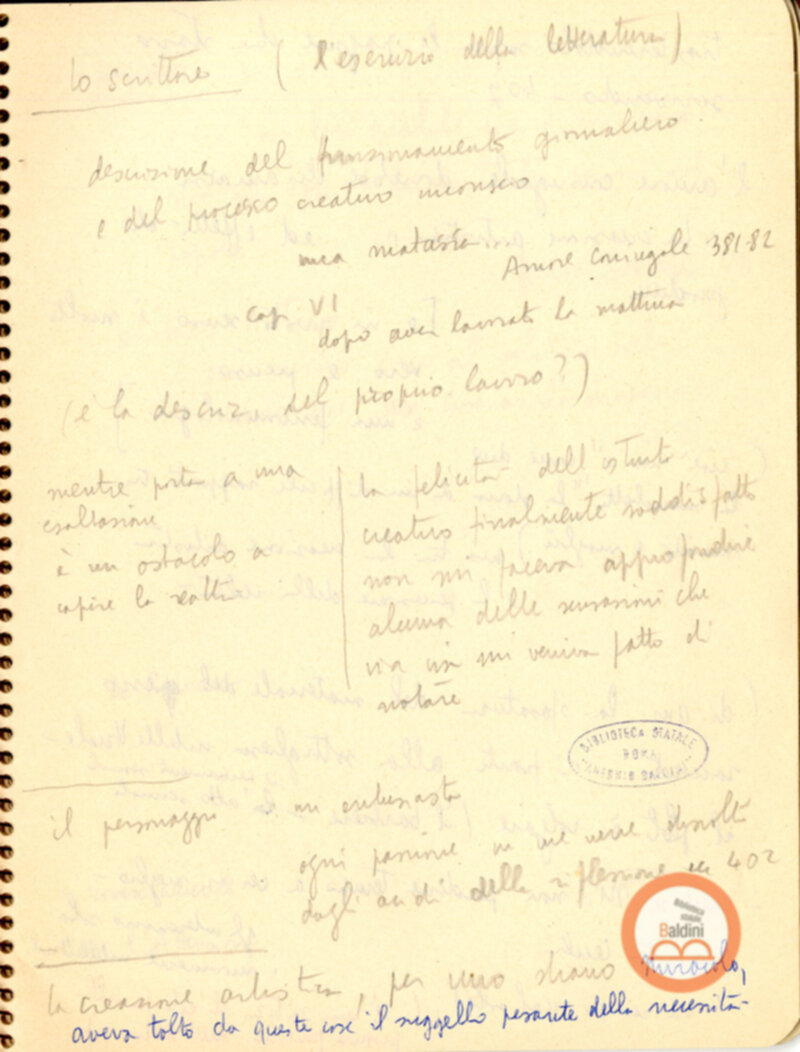 lo scrittore ( l'esercizio della letteratura)
descrizione del funzionamento giornaliero
e del processo creativo inconscio
una matassa
Amore Coniugale 381-82
cap. VI
dopo aver lavorato la mattina
(è la descriz. del proprio lavoro?)
mentre porta a una
esaltazione
è un ostacolo a
capire la realtà
la felicità dell'istinto
creativo finalmente soddisfatto
non mi faceva approfondire
alcuna delle sensazioni che
via via mi veniva fatto di
notare
BIBLIOTECA STATALE
ROMA
ANTONIO BALDINI
il personaggio un entusiasta
ogni passione in me viene disciolta
dagli acidi della riflessione 402
Biblioteca
statale
Baldini
la creazione artistica, per uno strano miracolo,
aveva tolto da queste cose il suggello pesante della necessità